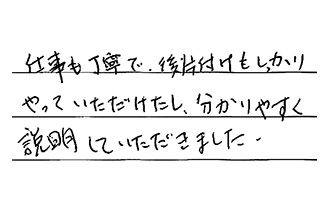 仕事も丁寧で、後片付けもしっかり
やっていただけたし、分かりやすく
説明していただきました。